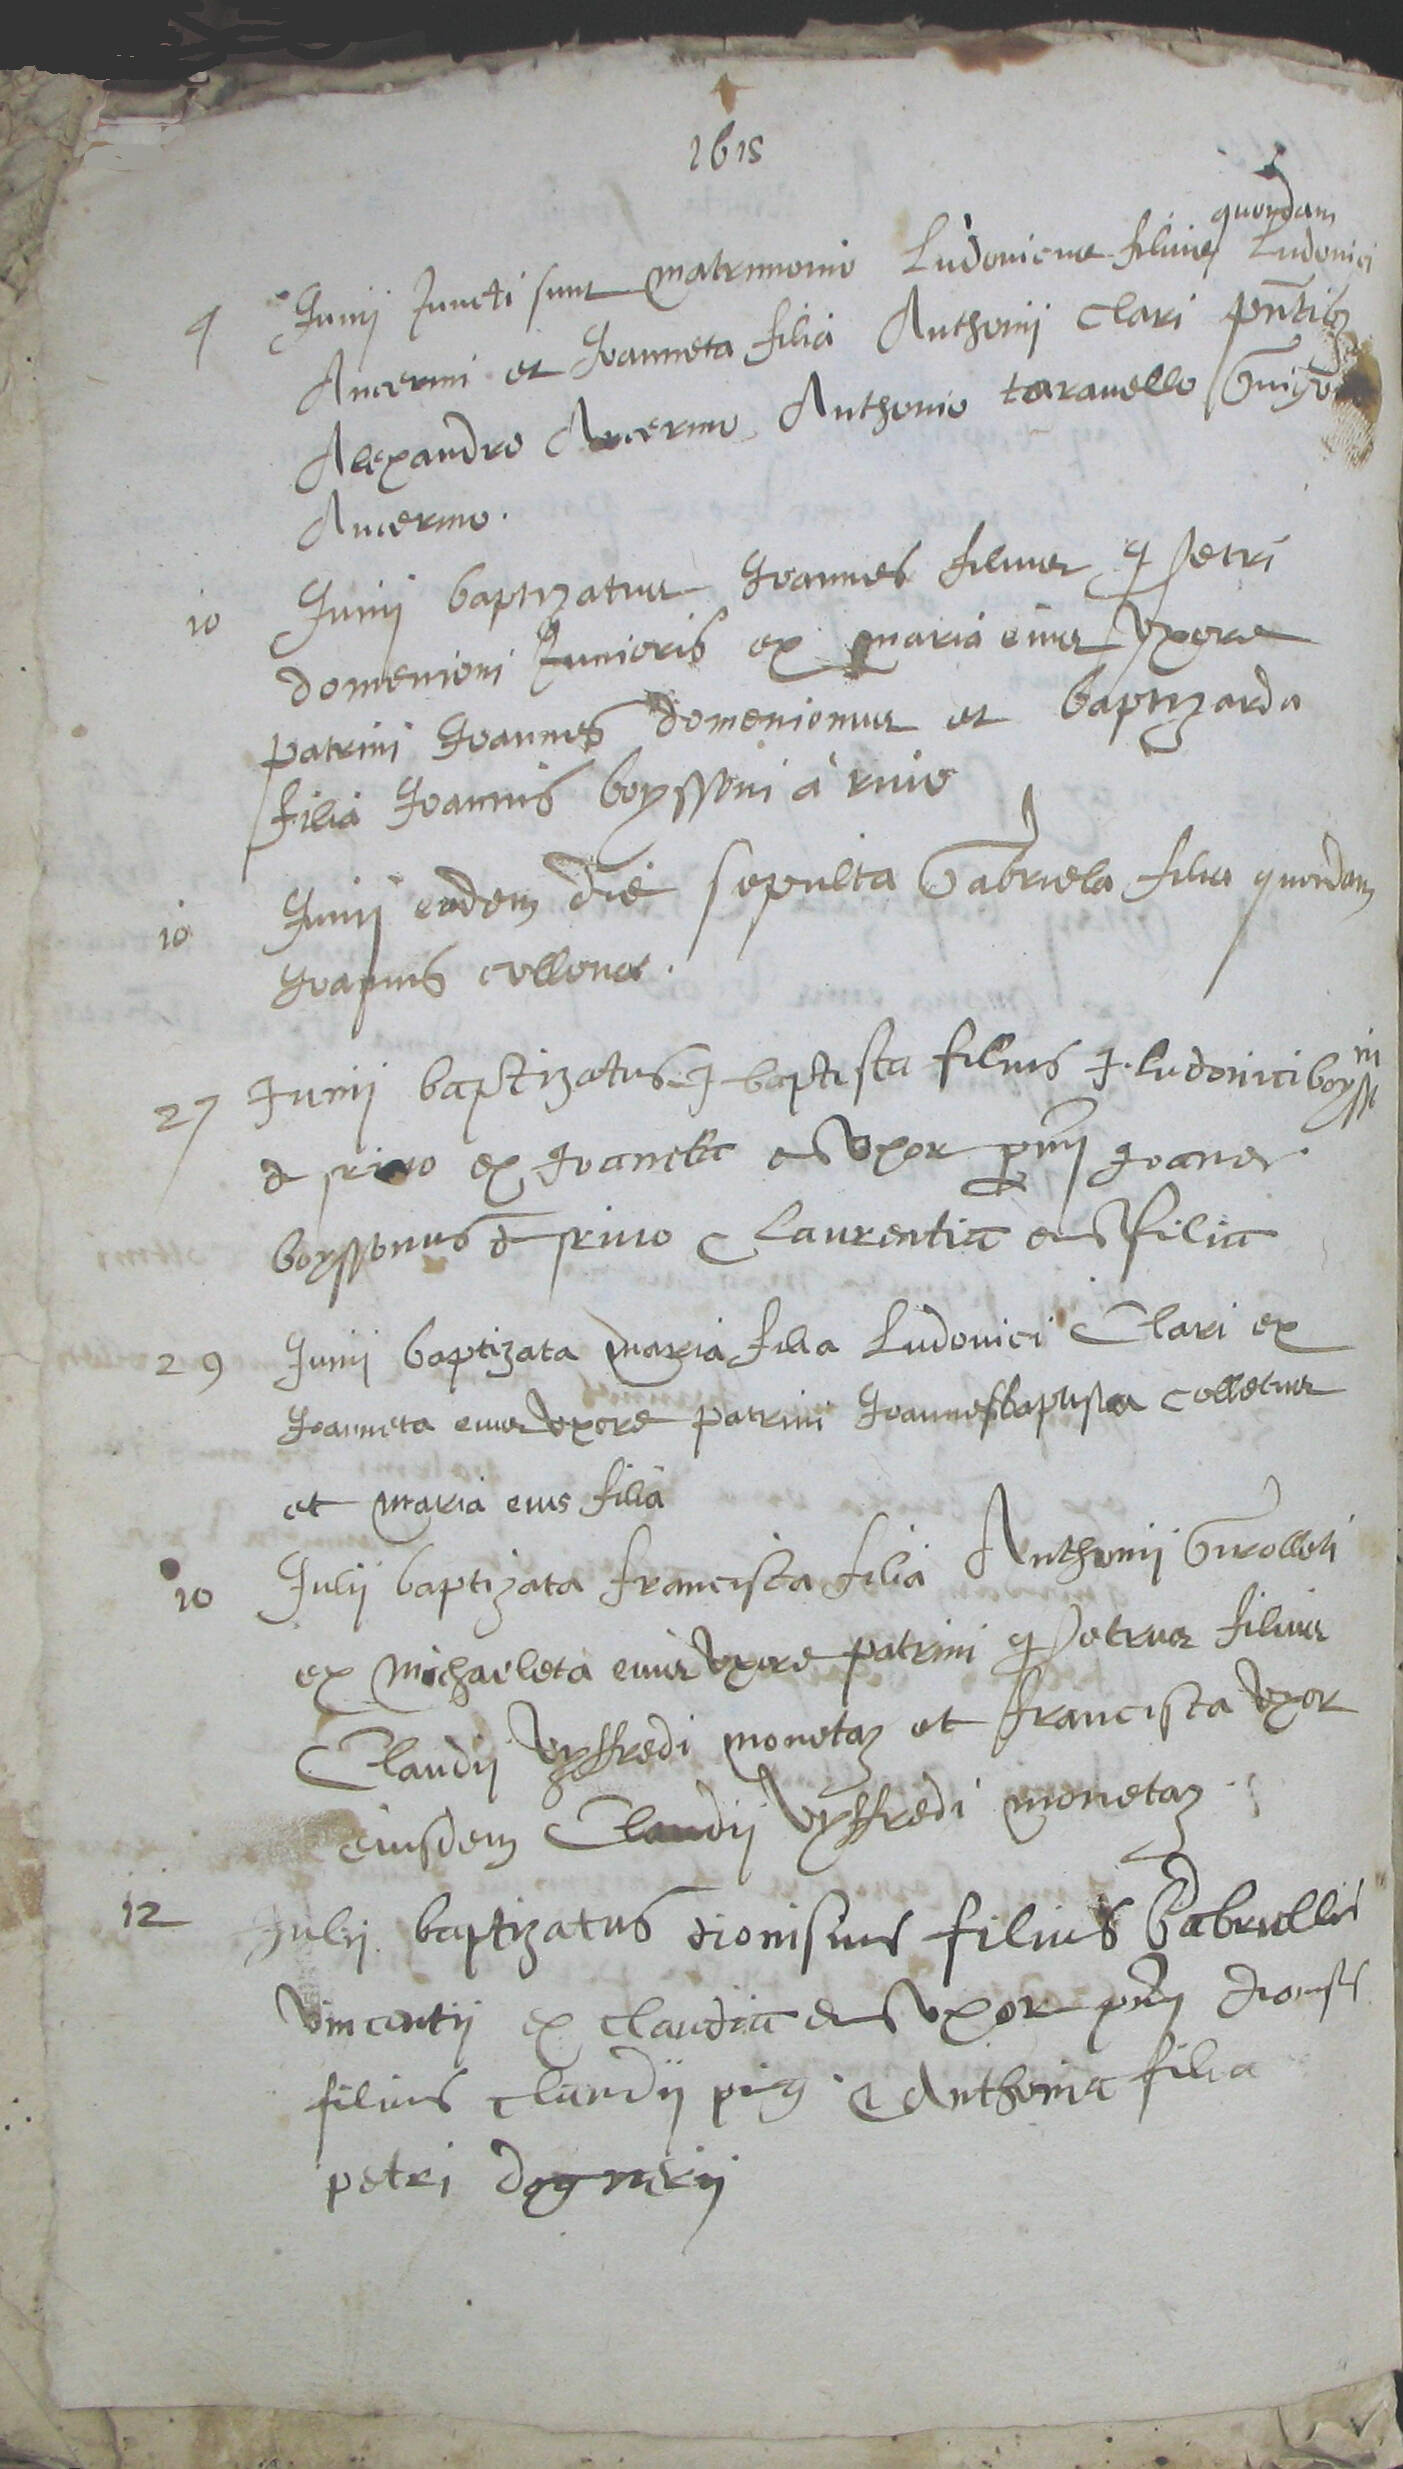 1615
quondam
9 Junij Juncti sunt matrimonio Ludovicus filius Ludovici
Ancermi et Joanneta filia Anthonij Clari pntibz
Alexandro Ancermo Anthonio taravello
Ancermo.
10 Junij baptizatus Joannes filius Petri
domenioni Junioris ex maria eius Uxore
patrini Joannes domenionus et baptizarda
filia Joannis boyssoni à rivo
10 Junij eodem die sepulta Gabriela filia quondam
Joannis
27 Junij baptizatus J baptista filius J. ludovici boysso
ni
d rivo ex Joaneta uxor Joanes
boyssonus d rivo Laurentia filia
29 Junij baptizata maria filia Ludovici Clari ex
Joanneta eius uxore patrini Joannesbaptista colletus
et maria eius filia
10 Julij baptizata francisca filia Anthonij
ex Michaeleta eius uxore patrini Petrus filius
Claudij moneta et francisca uxor
eiusdem Claudij moneta
12 Julij baptizatus dionisius filius Gabriellis
Vincentij ex claudia uxor
filius claudij Anthonia filia
petri